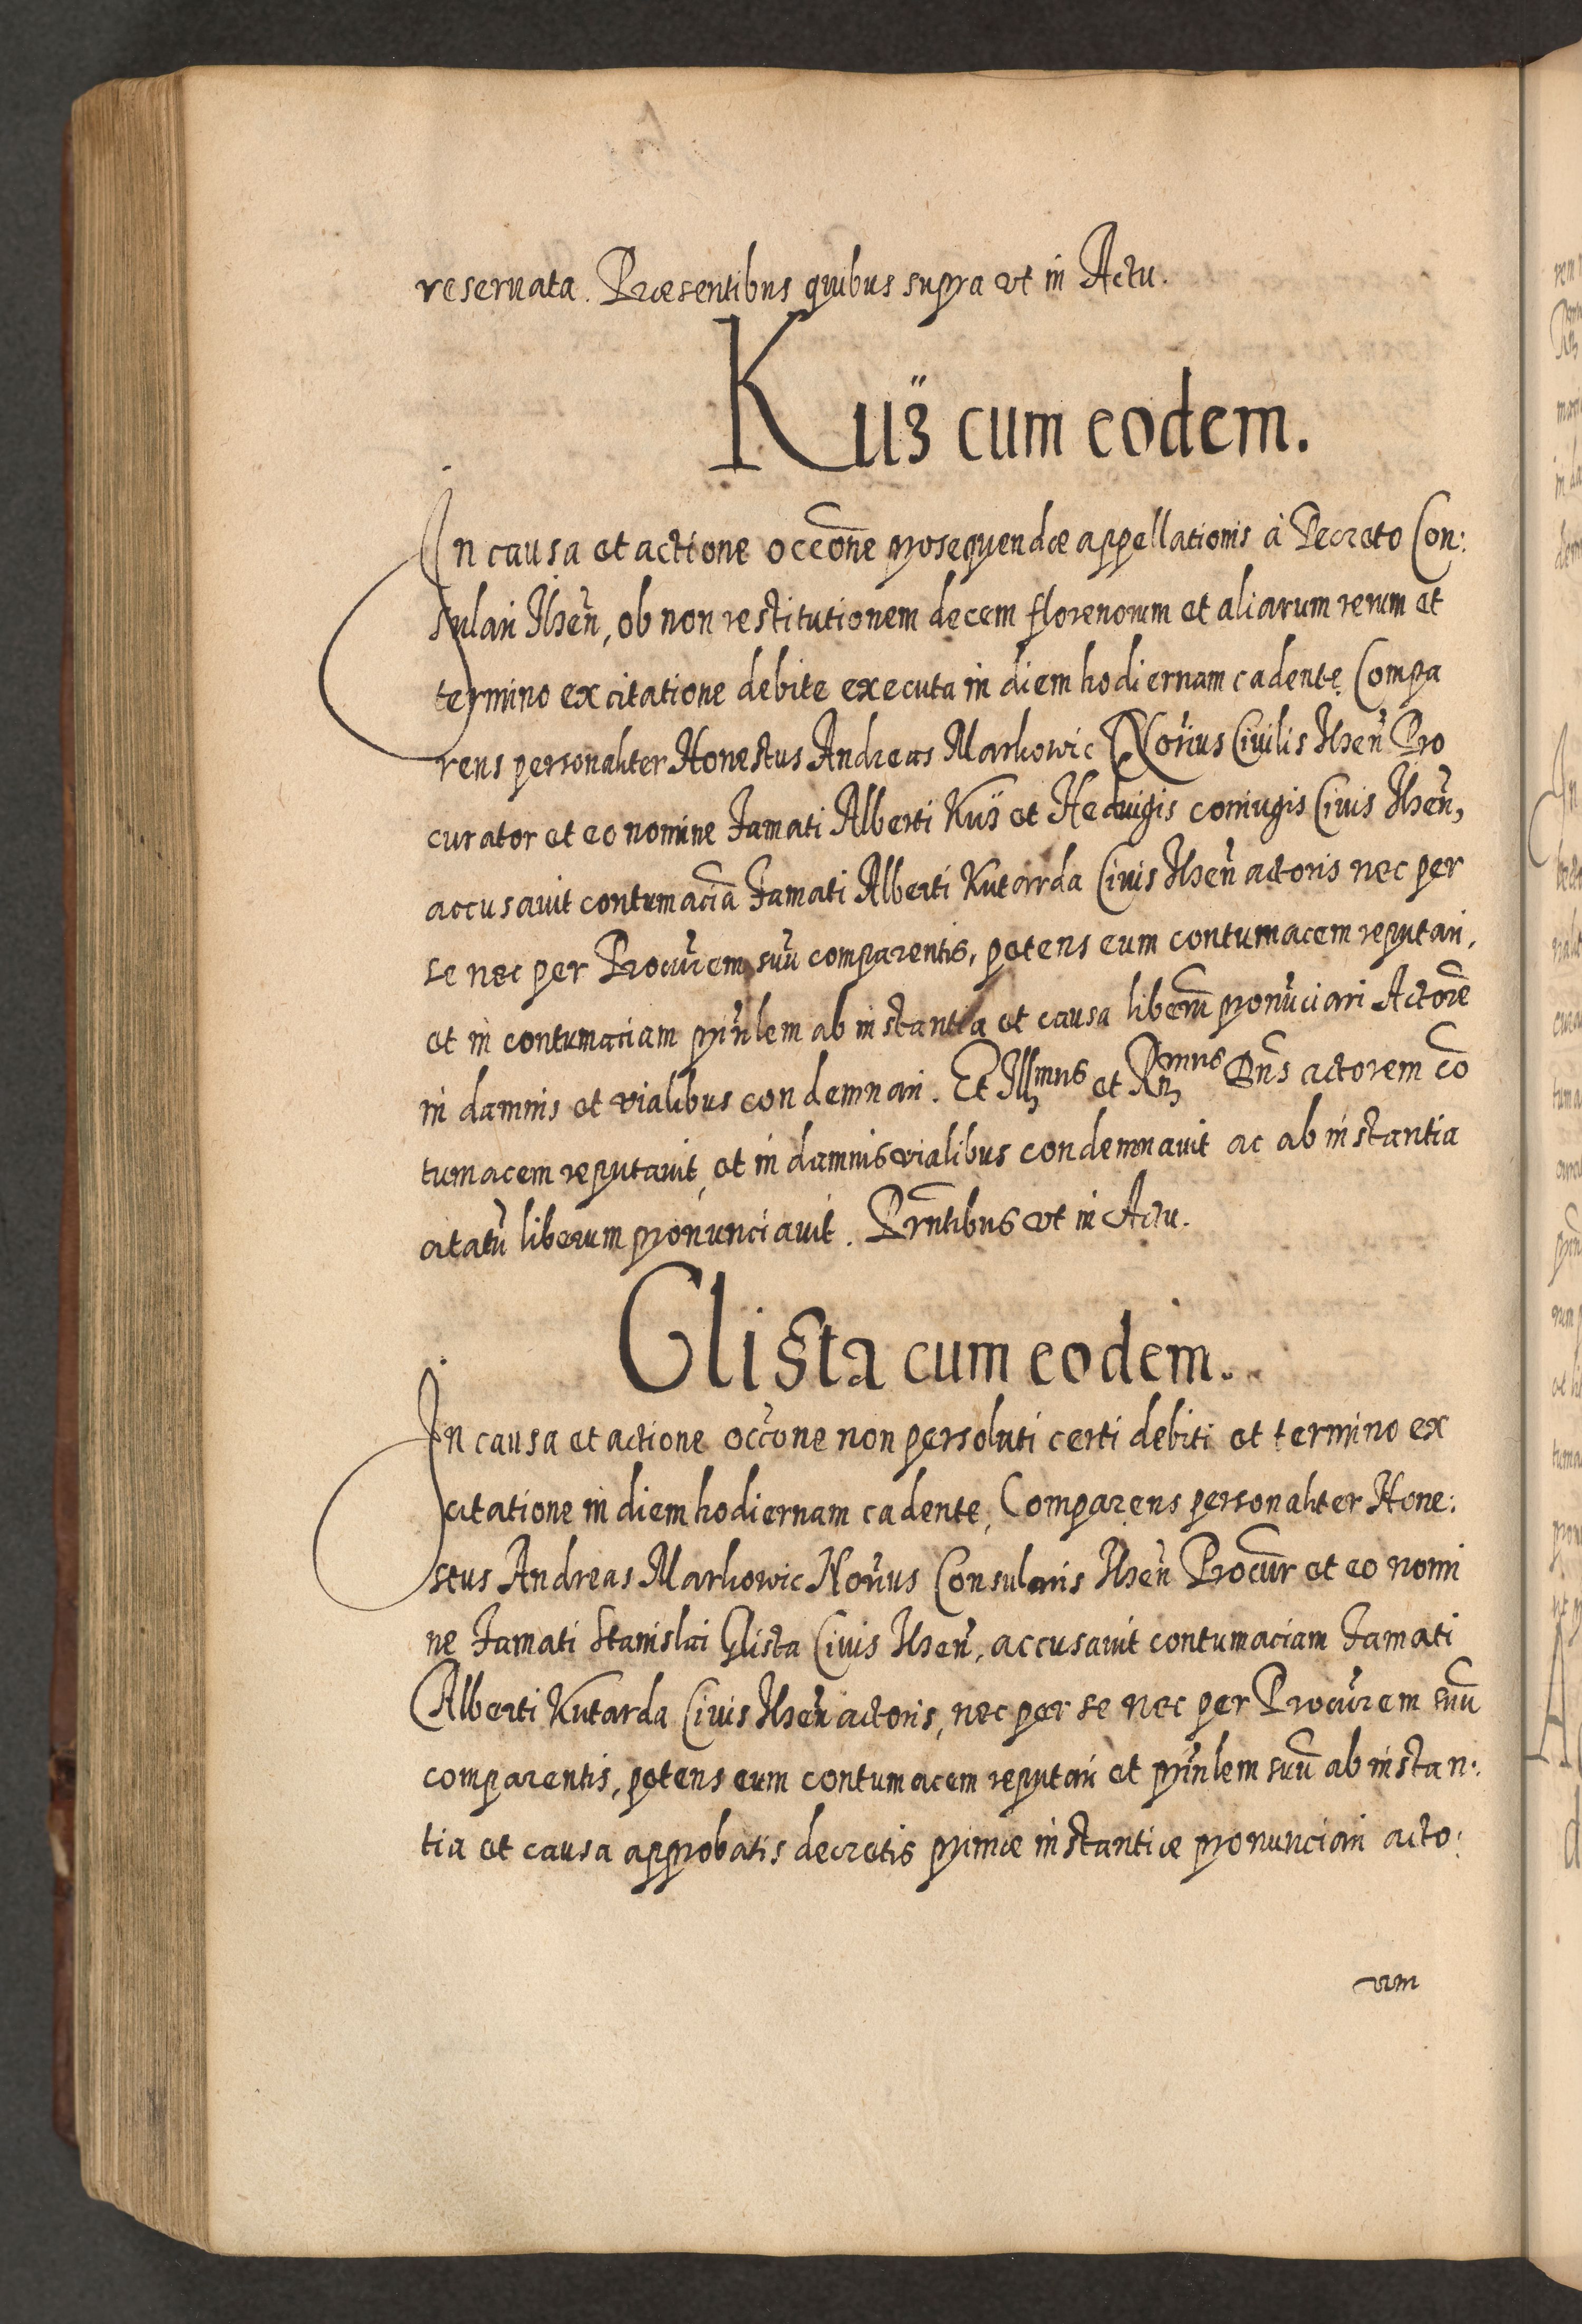 reseruata. Præsentibus quibus supra vt in Actu.
Kuiʒ cum eodem.
In causa et actione occōne prosequendæ appellationis à Decreto Con:
sulari Ilzeñ, ob non restitutionem decem florenorum et aliarum rerum et
termino ex citatione debite executa in diem hodiernam cadente Compa
rens personaliter Honestus Andreas Markowic Norius Ciuilis Ilzeñ Pro
curator et eo nomine Famati Alberti Kuiʒ et Heduigis coniugis Ciuis Ilzeñ,
accusauit contumaciā Famati Alberti Kutarda Ciuis Ilzeñ actoris nec per
se nec per Procūrem suū comparentis, petens eum contumacem reputari,
et in contumaciam prīnlem ab instantia et causa liberū pronūciari Actorē
in damnis et vialibus condemnari. Et Illmus et Rmus Dñs actorem cō
tumacem reputauit, et in damnis vialibus condemnauit ac ab instantia
citatū liberum pronunciauit. Prñtibus vt in Actu.
Glista cum eodem.
In causa et actione occōne non persoluti certi debiti et termino ex
citatione in diem hodiernam cadente, Comparens personaliter Hone:
stus Andreas Markowic Norius Consularis Ilzeñ Procūr et eo nomi
ne Famati Stanislai Glista Ciuis Ilzeñ, accusauit contumaciam Famati
Alberti Kutarda Ciuis Ilzeñ actoris, nec per se nec per Procūrem suū
comparentis, petens eum contumacem reputari et prīnlem suū ab instan:
tia et causa approbatis decretis primæ instantiæ pronunciari acto: